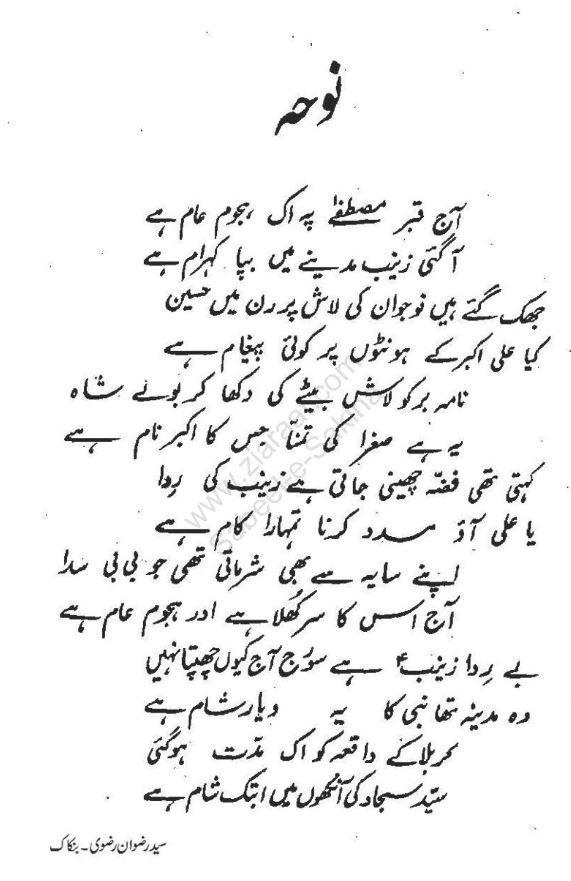 نوحہ
آج قبر مصطفیٰؐ پہ اک ہجوم عام ہے
آگئی زینب مدینے میں بپا کہرام ہے
جھک گئے ہیں نوجوان کی لاش پر رن میں حسین
کیا علی اکبر کے ہونٹوں پر کوئی پیغام ہے
نامہ بر کو لاش بیٹے کی دکھا کر بولے شاہ
یہ ہے صغرا کی تمنّا جس کا اکبر نام ہے
کہتی تھی فضّہ چھینی جاتی ہے زینب کی رِدا
یا علی آؤ مدد کرنا تمہارا کام ہے
اپنے سایہ سے بھی شرماتی تھی جو بی بی سدا
آج اس کا سر کھلا ہے اور ہجوم عام ہے
بے رِدا زینبؑ ہے سورج آج کیوں چھپتا نہیں
وہ مدینہ تھا نبی کا یہ دیار شام ہے
کربلا کے واقعہ کو اک مدّت ہوگئی
سیّد سجاد کی آنکھوں میں ابتک شام ہے
سید رضوان رضوی ۔ بنکاک
www.ziaraat.com
Sabeel-e-Sakina